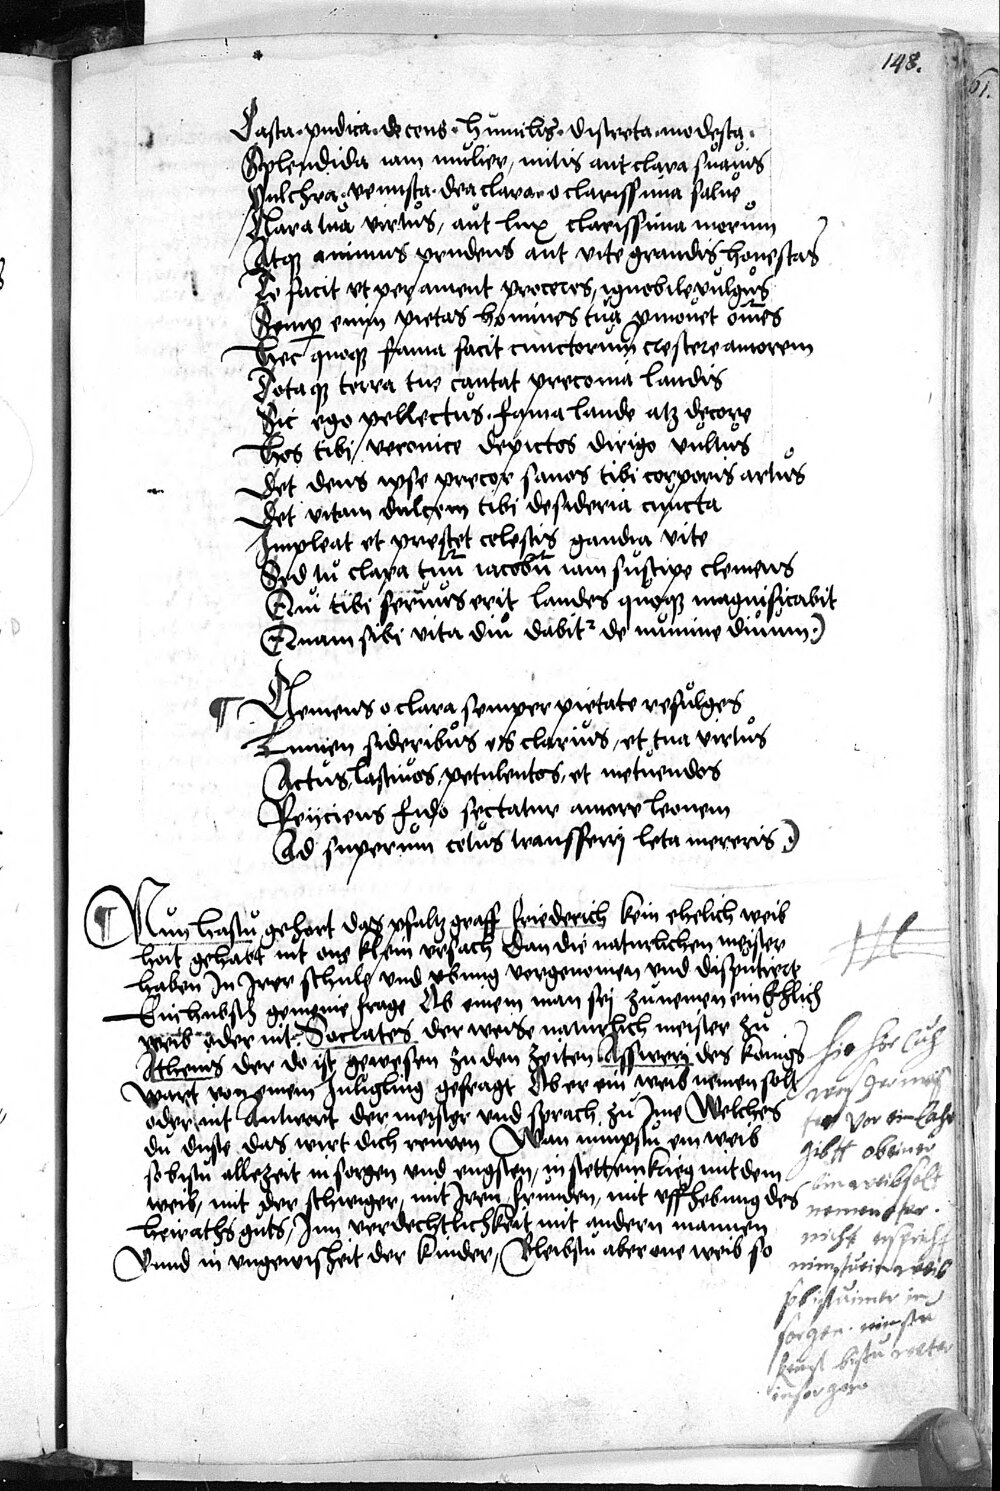 148.
61.
Casta · pudica · decens · humilis · discreta · modesta ·
Splendida iam mulier, mitis aut clara suavis
Pulchra · venusta · dea clara · o clarissima salve
Clara tua virtus, aut lux clarissima morum
Atq animus prudens aut vite grandis honestas
Te facit vt per ament proceres, ignobile vulgus
Semp enim pietas homines tua pmouet oms
Hec quoq fama facit cunctorum crescere amorem
Totaq terra tue cantat preconia laudis
Sic ego pellectus · fama laude atz decore
Hos tibi veronice depictos dirigo vultus
Det deus ipse precor sanos tibi corporis artus
Det vitam dulcem tibi desideria cuncta
Impleat et prestet celestis gaudia vite
Sed tu clara tuu iacobu iam suscipe clemens
Qui tibi seruus erit laudes quoq magnificabit
Quam sibi vita diu dabit de numine diuum
¶ Clemens o clara semper pietate refulges
Lumen sideribus es clarius, et tua virtus
Actus lasciuos, petulentos, et metuendos
Reiiciens fido sectatur amore leonem
Ad superum cetus transfferrj leta mereris
¶ Nun hastu gehort das pfaltzgraff friederich kein ehelich weib
hait gehabt nit one klein vrsach Dan die naturlichen meister
haben In Irer schule vnd vbung vorgenomen vnd disputiert
Ein hubsch gemeine frage Ob einem man sej zu nemen ein Ehlich
weib oder nit Socrates der weise naturlich meister zu
Athenas der do ist gewesen zu den zeiten Assweri des konigs
wart von einem Jungling gefragt Ob er ein weib nemen solt
oder nit Antwort der meister vnd sprach zu Ime Welches
du duste das wirt dich reuwen Wan nimpstu ein weib
so bistu allezeit in sorgen vnd engsten, in stettem krieg mit dem
weib, mit der schwiger, mit Iren frunden, mit vffhebung des
heiraths guts, Inn verdechtlichkeit mit andern mannen
Vnnd in vngewisheit der kinder, Bleibstu aber one weib so
hie
vor ein
gibtt ob einer
ein weib solt
nemen oder
nicht er spricht
nimstu ein weib
so bistu imer in
sorgen · nimstu
keins bistu
in sorgen